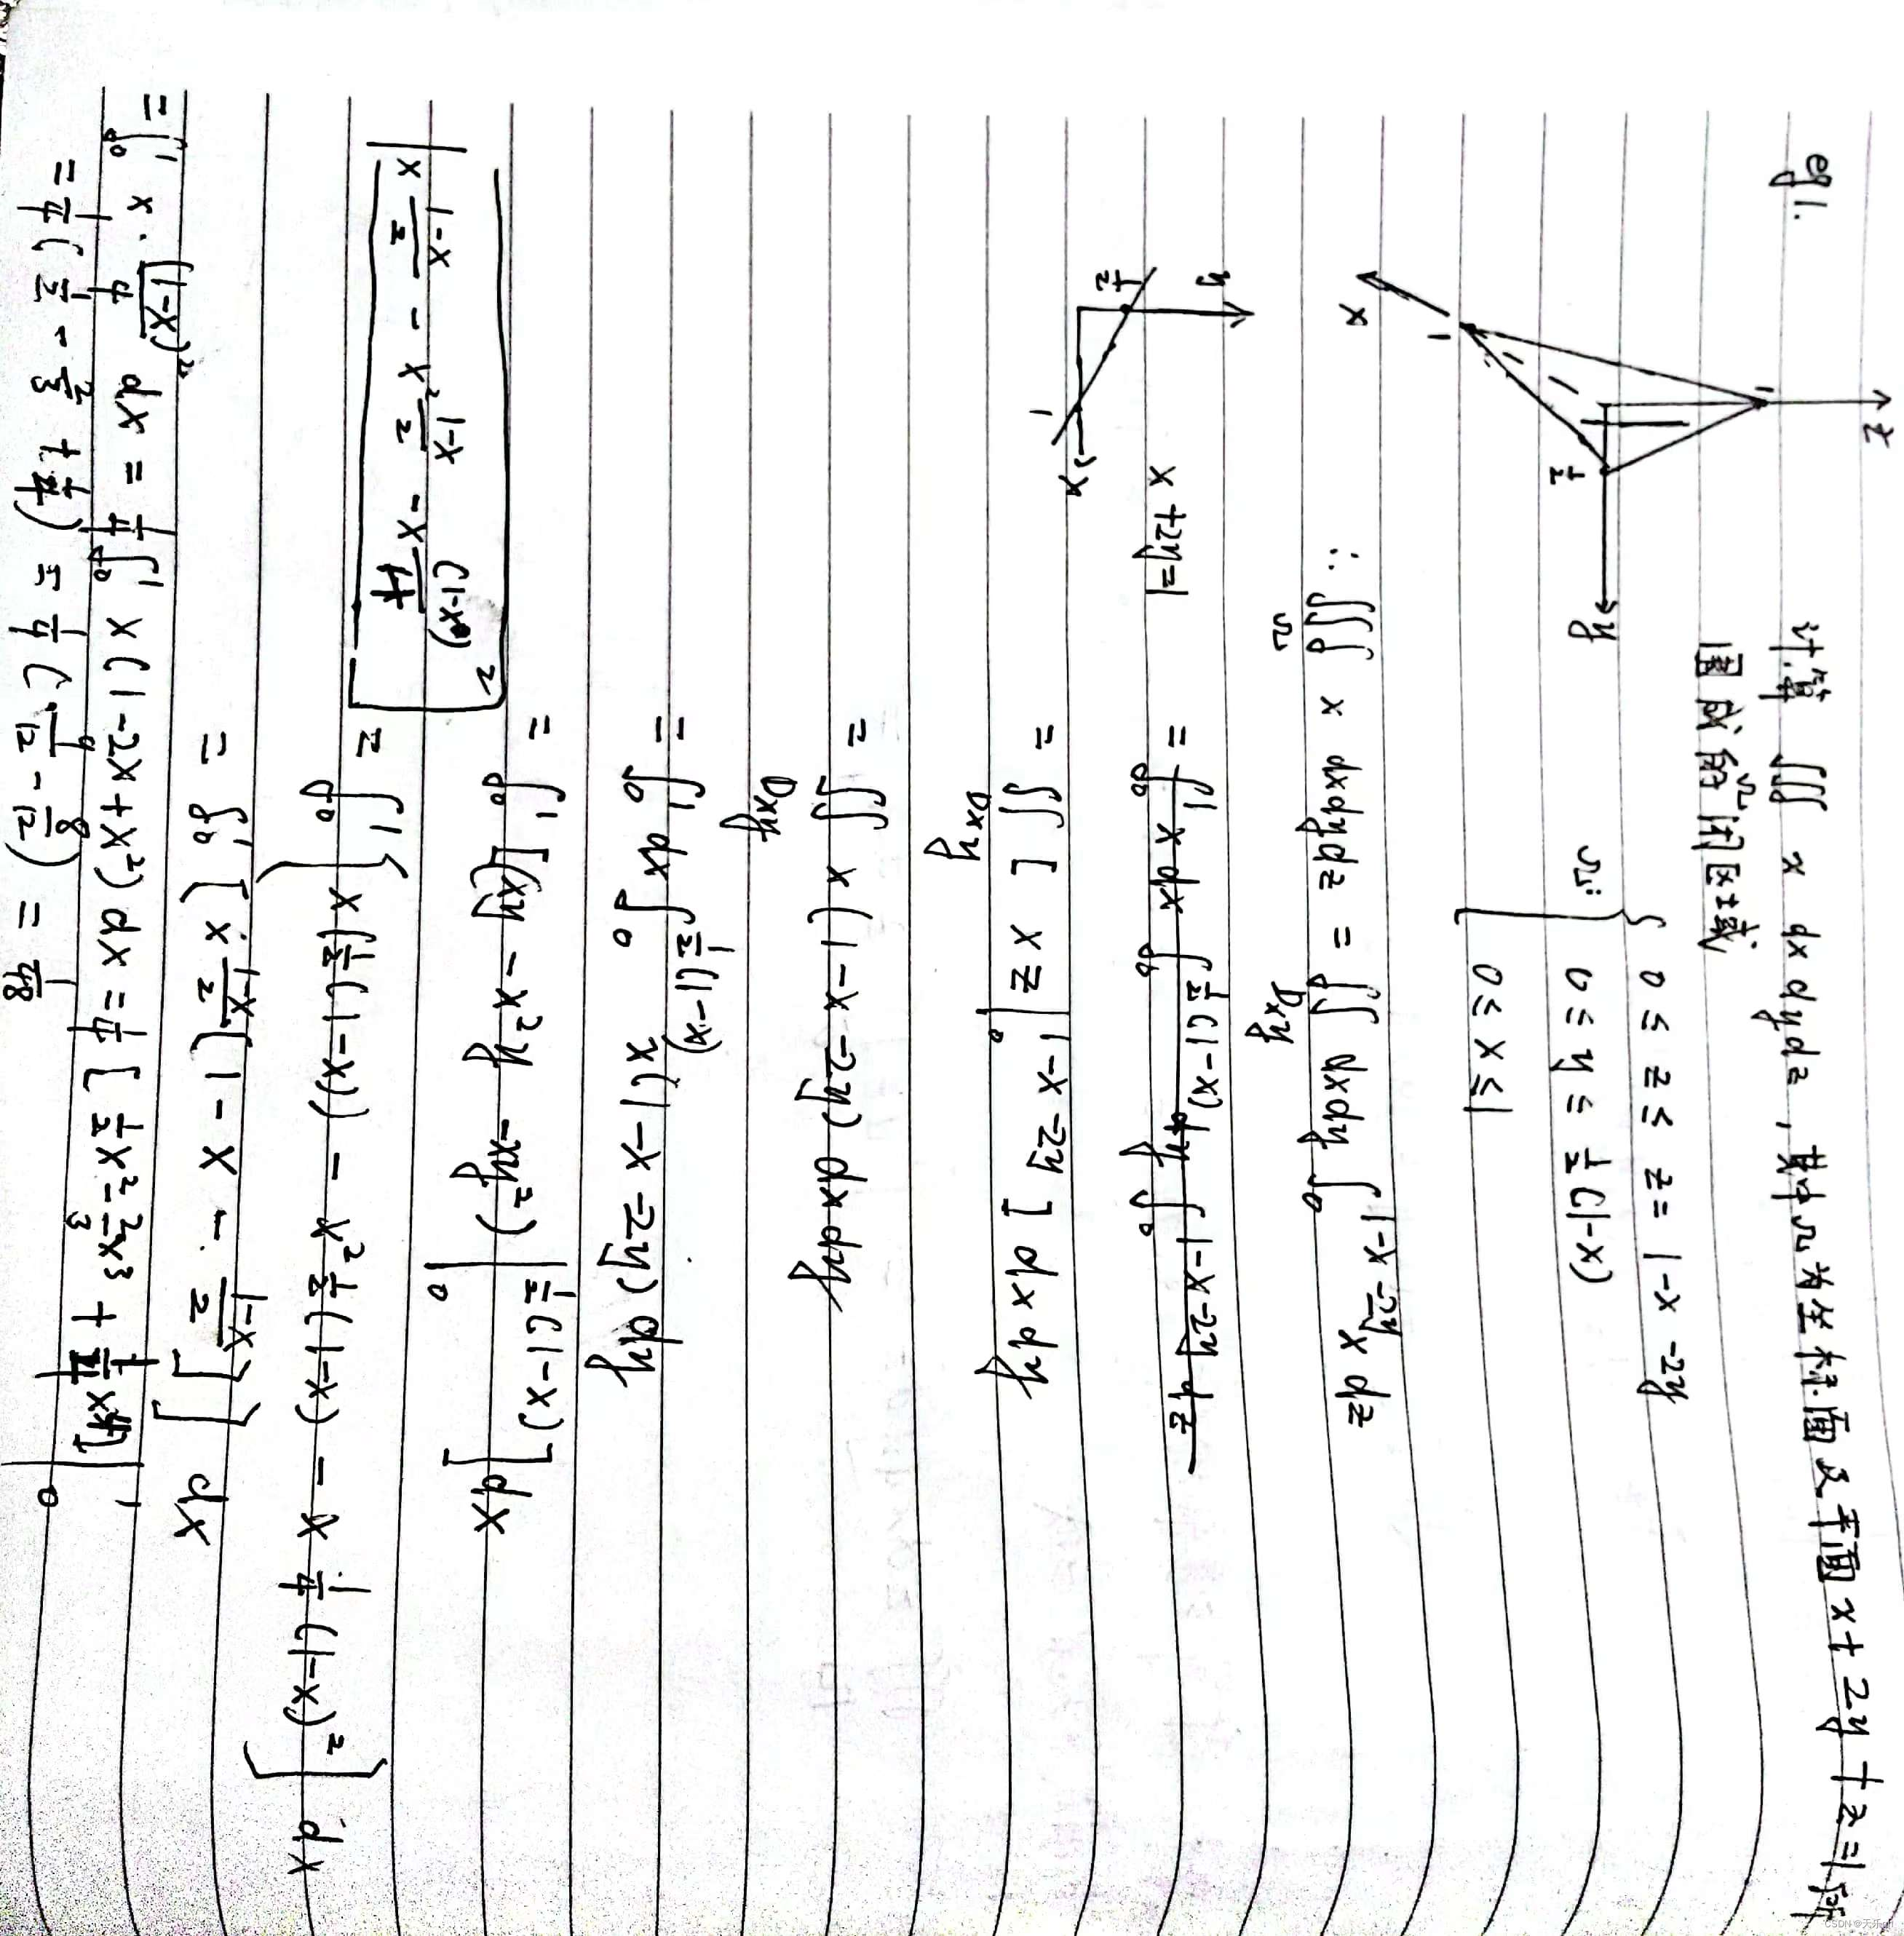 eg1. 计算 ∭Ω x dxdydz , 其中Ω为坐标面及平面 x+2y+z=1所
围成的闭区域
z
1
1/2
y
1
x
Ω: { 0 ≤ z ≤ z = 1-x-2y
0 ≤ y ≤ 1/2(1-x)
0 ≤ x ≤ 1
∴ ∭Ω x dxdydz = ∬Dxy dxdy ∫₀^(1-x-2y) x dz
y
1/2
1
x
x+2y=1
= ∫₀¹ x dx ∫₀^(1/2(1-x)) dy ∫₀^(1-x-2y) dz
= ∬Dxy [ xz |₀^(1-x-2y) ] dxdy
= ∬Dxy x(1-x-2y) dxdy
= ∫₀¹ dx ∫₀^(1/2(1-x)) x(1-x-2y) dy
= ∫₀¹ [(xy - x²y - xy²) |₀^(1/2(1-x)) ] dx
x (1-x)/2 - x² (1-x)/2 - x (1-x)²/4
= ∫₀¹ { x[1/2(1-x)] - x² 1/2(1-x) - x · 1/4(1-x)² } dx
= ∫₀¹ [ x (1-x)/2 [1 - x - (1-x)/2 ] ] dx
= ∫₀¹ x · (1-x)²/4 dx = 1/4 ∫₀¹ x(1-2x+x²) dx = 1/4 [ 1/2 x² - 2/3 x³ + 1/4 x⁴ ] |₀¹
= 1/4 ( 1/2 - 2/3 + 1/4 ) = 1/4 ( 9/12 - 8/12 ) = 1/48
CSDN @天乐gh